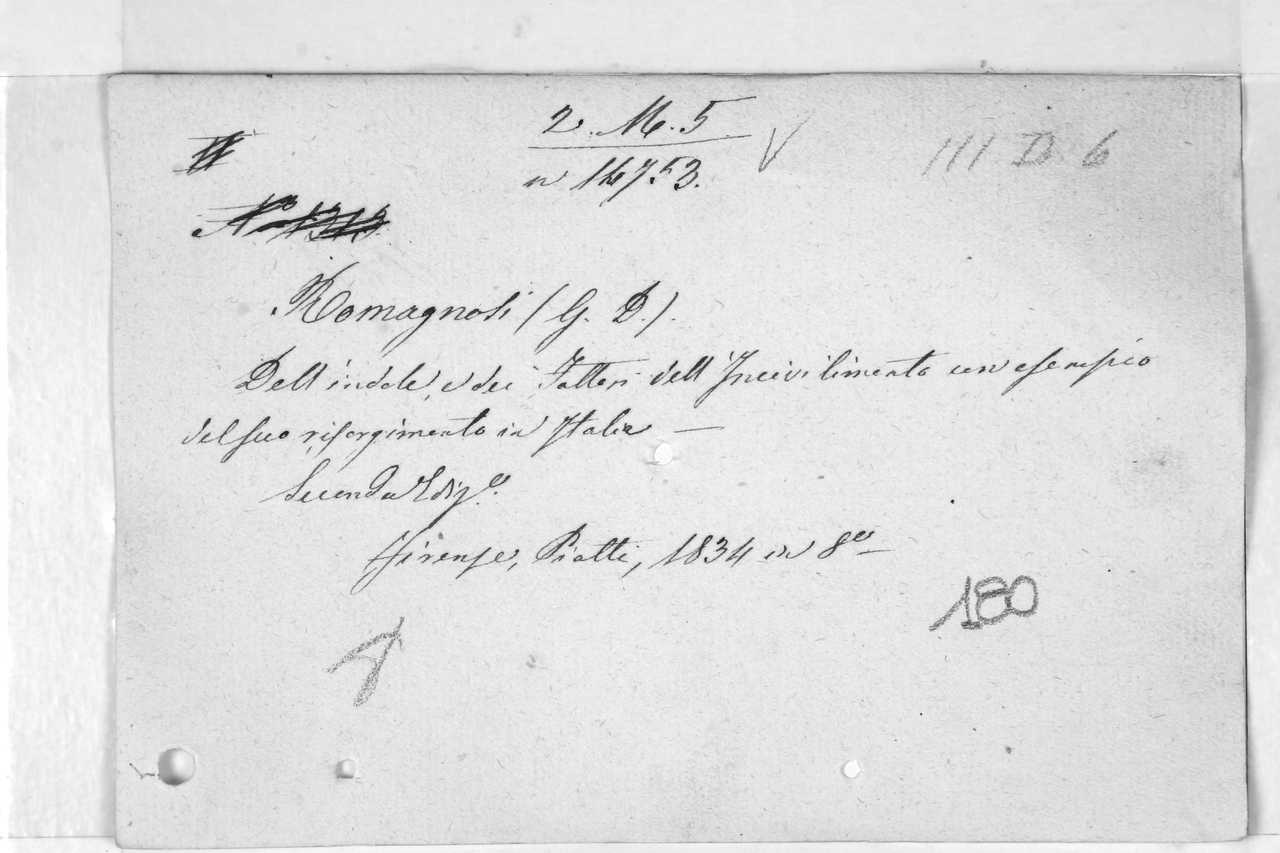 2. M. 5
n 14753.
III D 6
N° 1313
Romagnosi (G. D.).
Dell'indole, e dei Fattori dell'Incivilimento con esempio
del suo risorgimento in Italia —
Seconda Ediz.e
Firenze, Piatti, 1834 in 8°
180